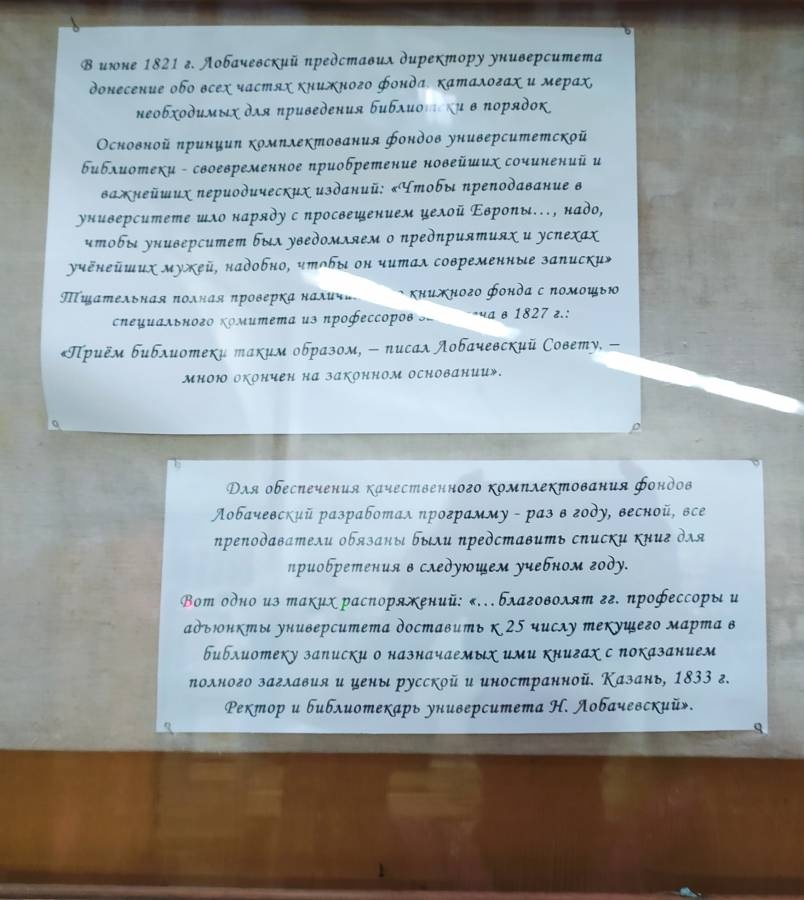 В июне 1821 г. Лобачевский представил директору университета
донесение обо всех частях книжного фонда, каталогах и мерах,
необходимых для приведения библиотеки в порядок
Основной принцип комплектования фондов университетской
библиотеки - своевременное приобретение новейших сочинений и
важнейших периодических изданий: «Чтобы преподавание в
университете шло наряду с просвещением целой Европы…, надо,
чтобы университет был уведомляем о предприятиях и успехах
учёнейших мужей, надобно, чтобы он читал современные записки»
Тщательная полная проверка книжного фонда с помощью
специального комитета из профессоров в 1827 г.:
«Приём библиотеки таким образом, – писал Лобачевский Совету, –
мною окончен на законном основании».
Для обеспечения качественного комплектования фондов
Лобачевский разработал программу - раз в году, весной, все
преподаватели обязаны были представить списки книг для
приобретения в следующем учебном году.
Вот одно из таких распоряжений: «…благоволят гг. профессоры и
адъюнкты университета доставить к 25 числу текущего марта в
библиотеку записки о назначаемых ими книгах с показанием
полного заглавия и цены русской и иностранной. Казань, 1833 г.
Ректор и библиотекарь университета Н. Лобачевский».